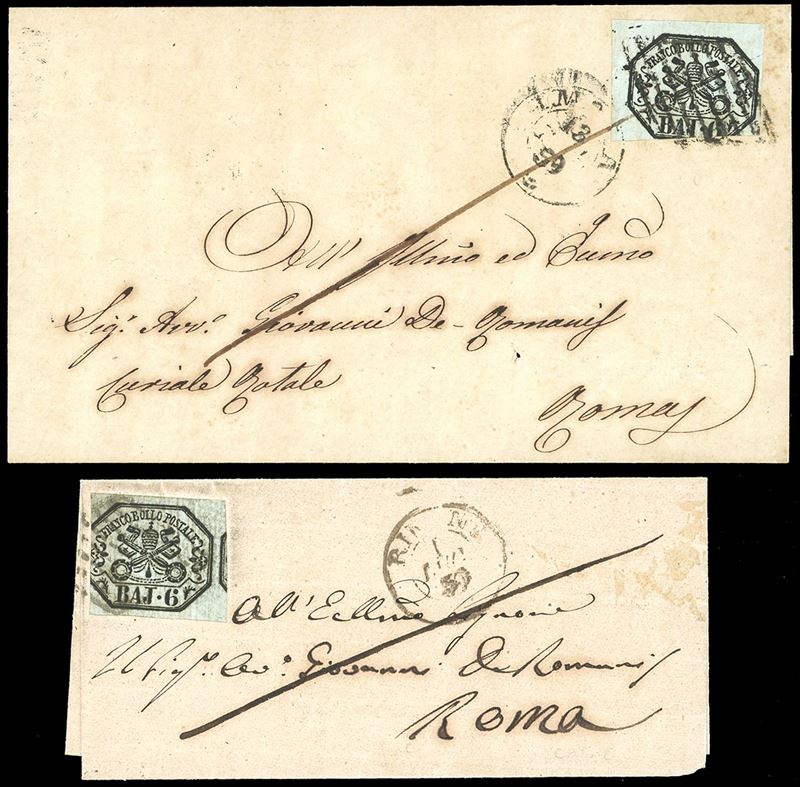 FRANCO BOLLO POSTALE
BAJ. 6
59
Dell' Illmo ed
Sig. Avv. Giovanni De-Romanis
Curiale Rotale
Roma
FRANCO BOLLO POSTALE
BAJ·6
All' Ecllmo Signore
Il Sig. Avv. Giovanni De Romanis
ROMA